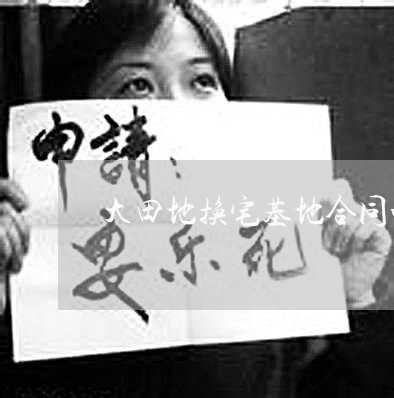 申請：
大田地换宅基地合同
要乐死